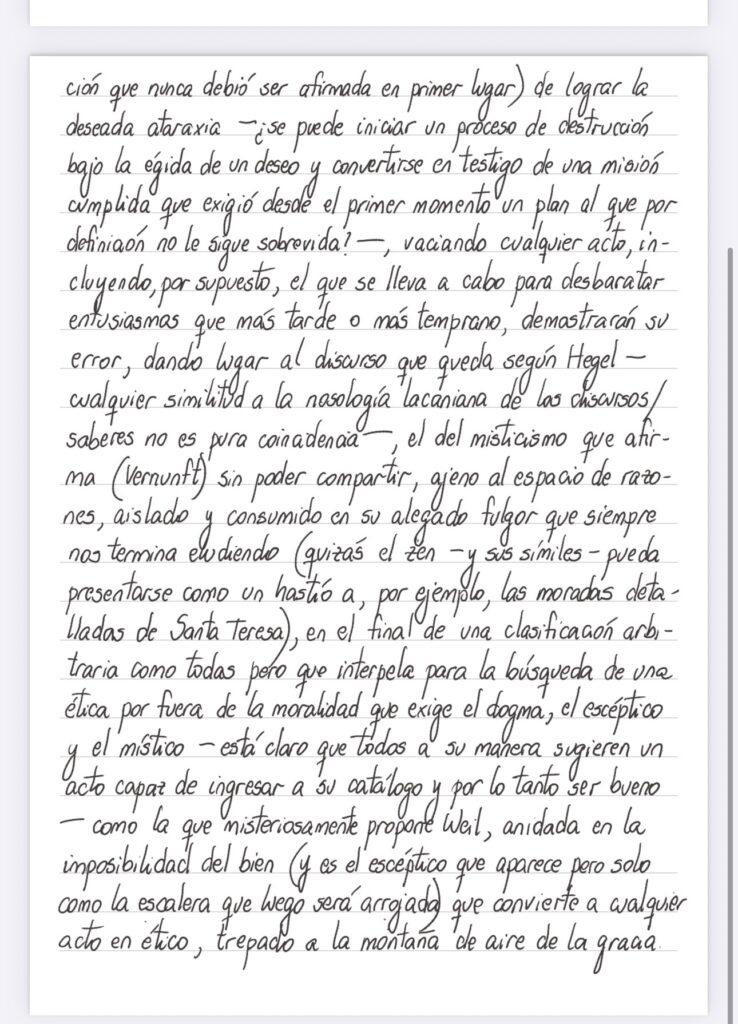 ción que nunca debió ser afirmada en primer lugar) de lograr la
deseada ataraxia —¿se puede iniciar un proceso de destrucción
bajo la égida de un deseo y convertirse en testigo de una misión
cumplida que exigió desde el primer momento un plan al que por
definición no le sigue sobrevida?—, vaciando cualquier acto, in-
cluyendo, por supuesto, el que se lleva a cabo para desbaratar
entusiasmos que más tarde o más temprano, demostrarán su
error, dando lugar al discurso que queda según Hegel —
cualquier similitud a la nosología lacaniana de los discursos/
saberes no es pura coincidencia—, el del misticismo que afir-
ma (Vernunft) sin poder compartir, ajeno al espacio de razo-
nes, aislado y consumido en su alegado fulgor que siempre
nos termina eludiendo (quizás el zen —y sus símiles— pueda
presentarse como un hastío a, por ejemplo, las moradas deta-
lladas de Santa Teresa), en el final de una clasificación arbi-
traria como todas pero que interpela para la búsqueda de una
ética por fuera de la moralidad que exige el dogma, el escéptico
y el místico —está claro que todos a su manera sugieren un
acto capaz de ingresar a su catálogo y por lo tanto ser bueno
— como la que misteriosamente propone Weil, anidada en la
imposibilidad del bien (y es el escéptico que aparece pero solo
como la escalera que luego será arrojada) que convierte a cualquier
acto en ético, trepado a la montaña de aire de la gracia.